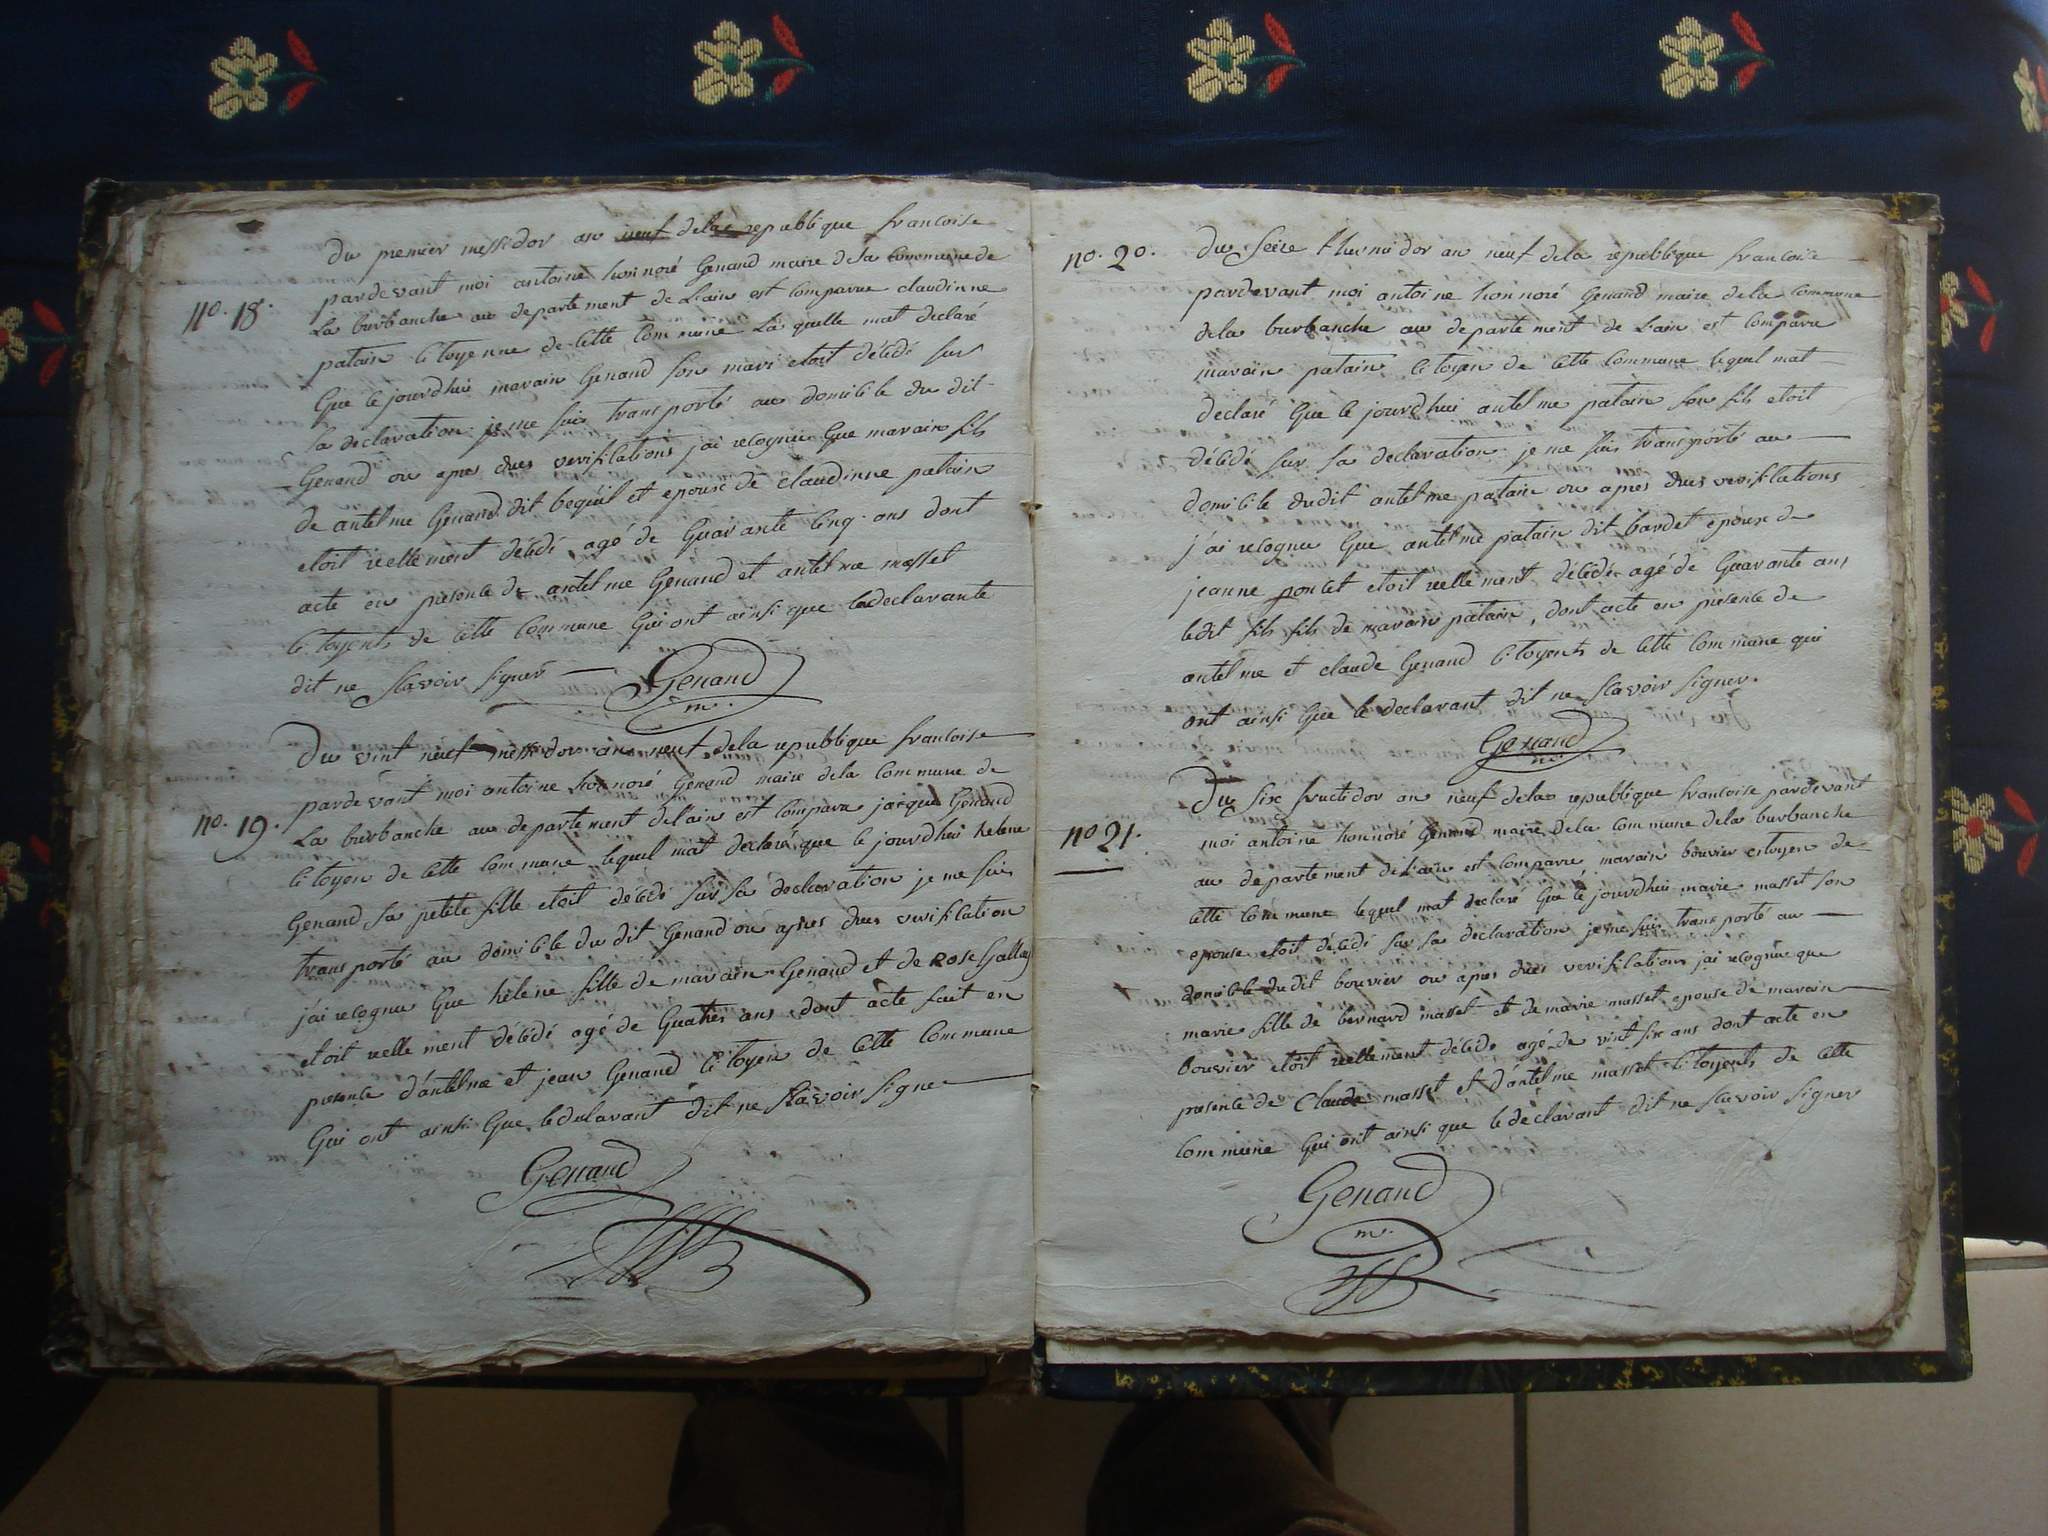 Du premier messidor an neuf dela republique francoise
no. 18.
pardevant moi antoine honoré Genand maire dela commune de
La burbanche au departement de L'ain est comparue claudinne
patain citoyenne de cette commune La quelle mat declaré
Que cejourdhui marain Genand son mari etoit décédé sur
sa declaration je me suis transporté au domicile du dit
Genand ou apres dues verifications j'ai recognu Que marain fils
de antelme Genand dit et epoux de claudinne patain
etoit reellement décédé agé de Quarante cinq ans dont
acte en presence de antelme Genand et antelme masset
citoyents de cette commune Qui ont ainsi que la declarante
dit ne scavoir signer
Genand
m.
Du vint neuf messidor an neuf dela republique francoise
pardevant moi antoine honoré Genand maire dela commune de
no. 19.
La burbanche au departement delain est comparu jacque Genand
citoyen de cette commune lequel mat declaré que le jourdhui helene
Genand sa petite fille etoit décédé sur sa declaration je me suis
transporté au domicile du dit Genand ou apres dues verification
j'ai recognu Que helene fille de marain Genand et de Rose Gallay
etoit reellement décédé agé de Quatres ans dont acte fait en
presence d'antelme et jean Genand citoyen de cette commune
Qui ont ainsi Que le declarant dit ne scavoir signe
Genand
no. 20.
Du seize thermidor an neuf dela republique francoise
pardevant moi antoine honnoré Genand maire dela commune
dela burbanche au departement de L'ain est comparu
marain patain citoyen de cette commune lequel mat
declaré Que le jourdhui antelme patain son fils etoit
décédé sur sa declaration je me suis transporté au
domicile dudit antelme patain ou apres dues verifications
j'ai recognu Que antelme patain dit bardet epoux de
jeanne poncet etoit reellement décédé agé de Quarante ans
ledit fils fils de marain patain, dont acte en presence de
antelme et claude Genand citoyents de cette commune qui
ont ainsi Que le declarant dit ne scavoir signer.
Genand
Du six fructidor an neuf dela republique francoise pardevant
no 21.
moi antoine honnoré Genand maire dela commune dela burbanche
au departement de L'ain est comparu marain bouvier citoyen de
cette commune lequel mat declaré Que le jourdhui marie masset son
epouse etoit décédé sur sa declaration je me suis transporté au
domicile dudit bouvier ou apres dues verifications j'ai recognu que
marie fille de bernard masset et de marie masset epouse de marain
bouvier etoit reellement décédé agé de vint six ans dont acte en
presence de Claude masset et d'antelme masset citoyents de cette
commune Qui ont ainsi que le declarant dit ne scavoir signer
Genand
m.